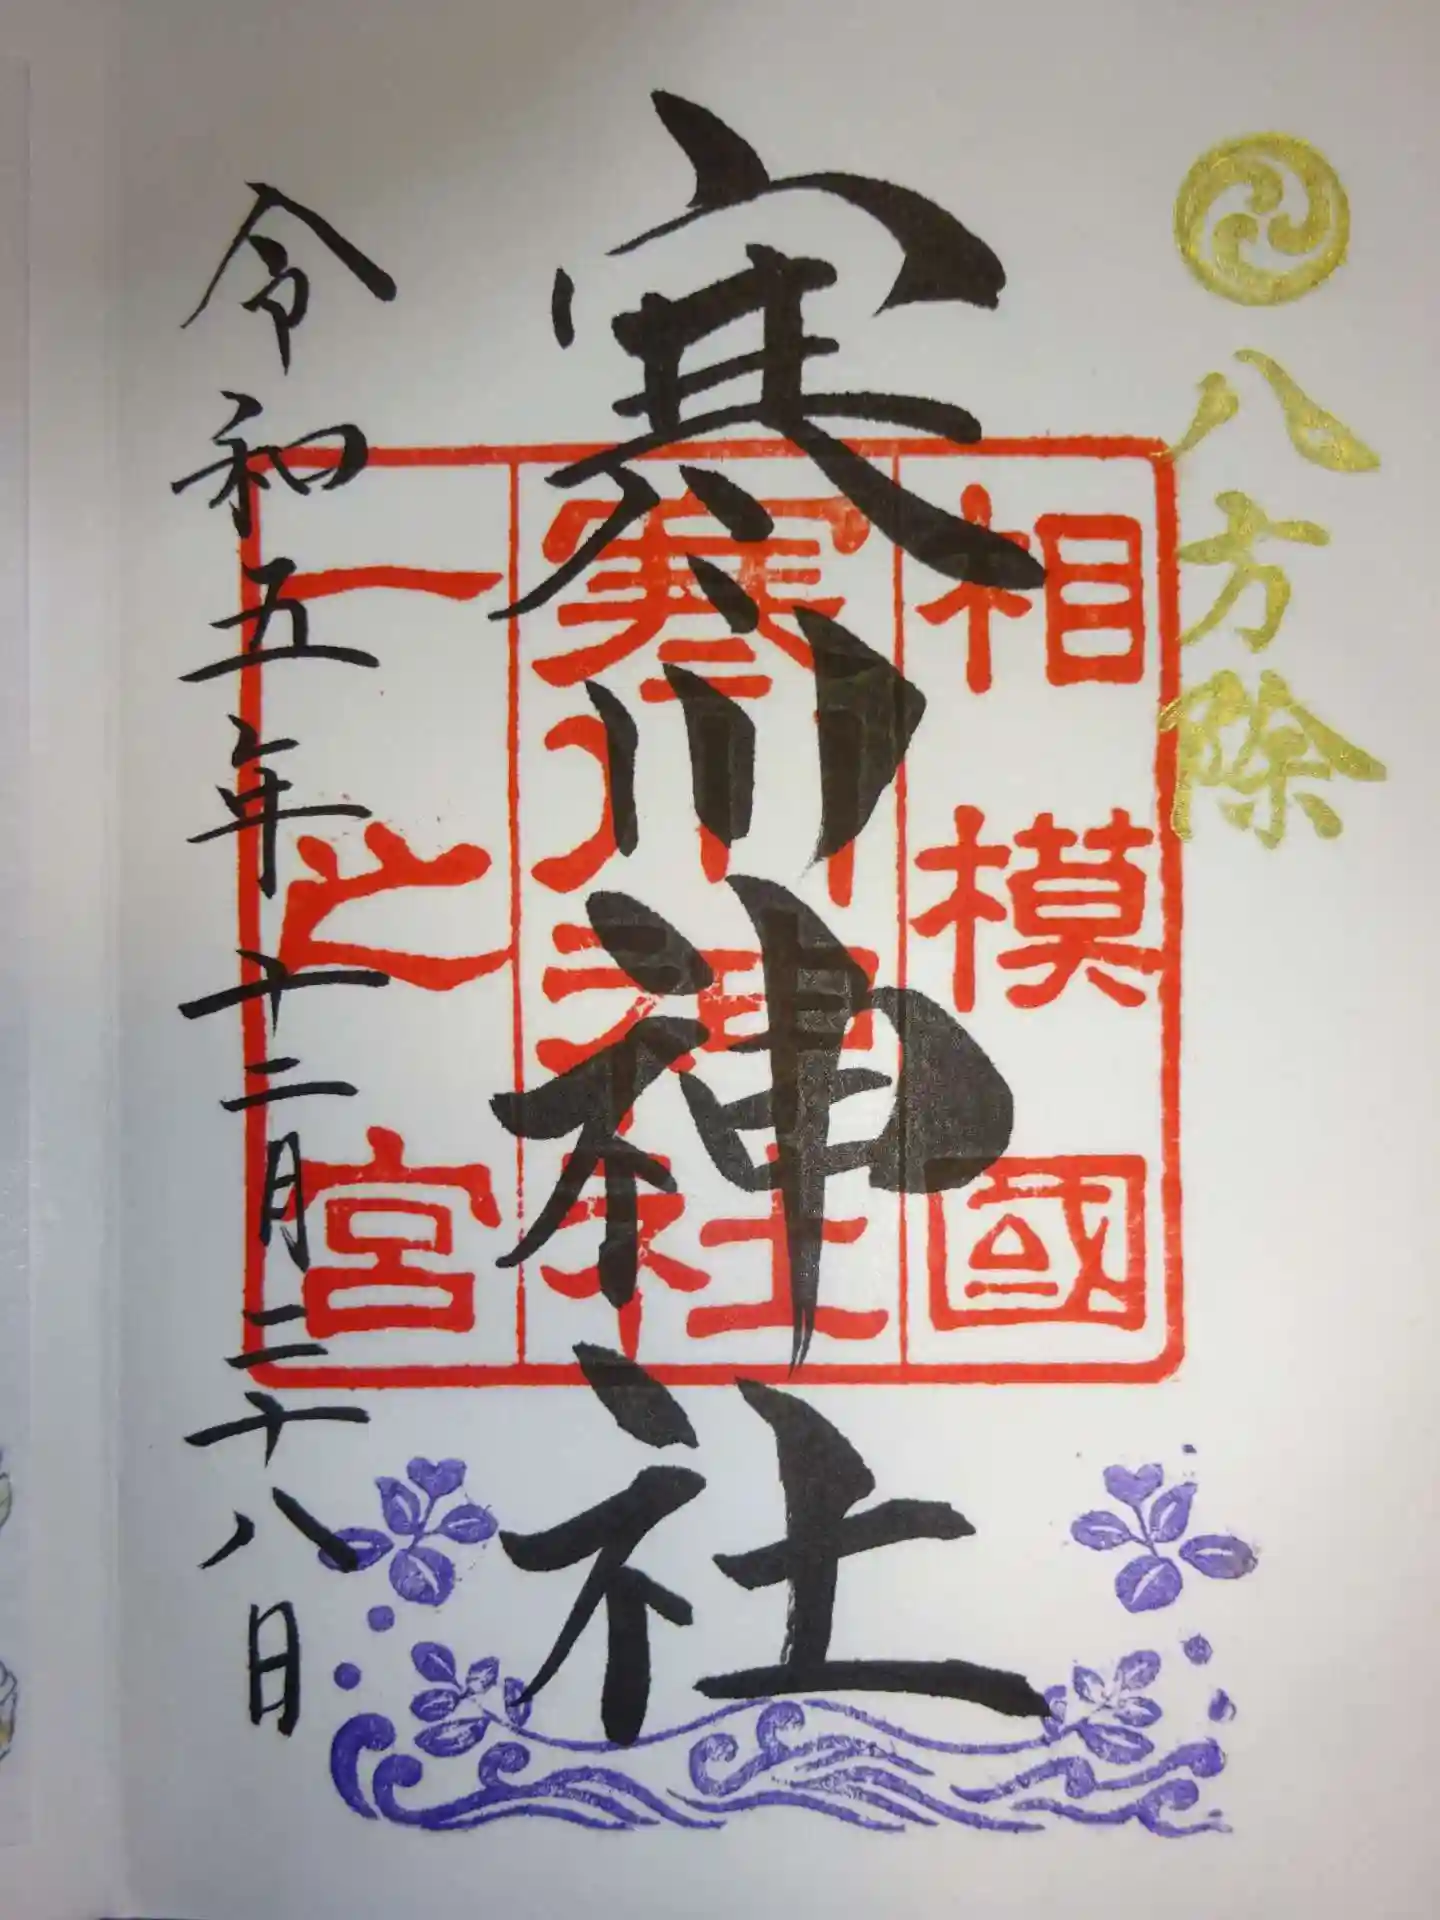 八方除
寒川神社
相模國
寒川神社
一之宮
令和五年十二月二十八日